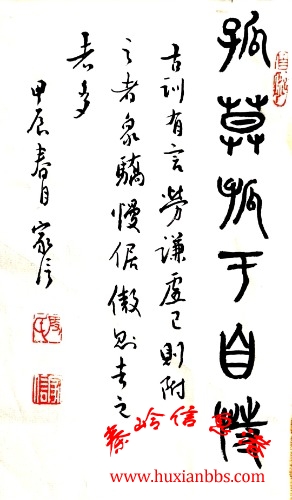 孤莫孤于自恃
古訓有言勞謙虛己則附
之者衆驕慢倨傲則去之
者多
甲辰春月 家信
秦岭信息
www.huxianbbs.com